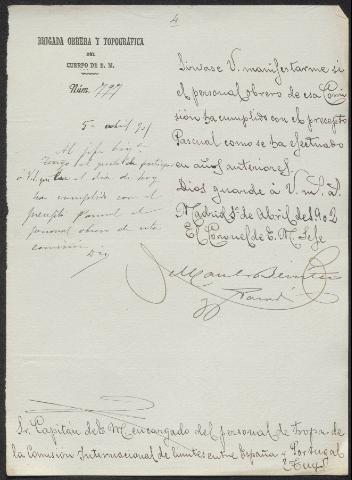 4
BRIGADA OBRERA Y TOPOGRÁFICA
DEL
CUERPO DE E. M.
Núm. 797
Sírvase V. manifestarme si
el personal obrero de esa Comi
sión ha cumplido con el precepto
Pascual como se ha efectuado
en años anteriores.
Dios guarde á V. m. a.
Madrid 1º de Abril de 1902
El Coronel de E. M. Jefe
5 abril 90
Al Jefe
Tengo el gusto de participar
á V. que el día de hoy
ha cumplido con el
precepto Pascual el
personal obrero de esta
comisión
Sr. Capitán de E. M. encargado del personal de tropa de
la Comisión Internacional de límites entre España y Portugal
Tuy